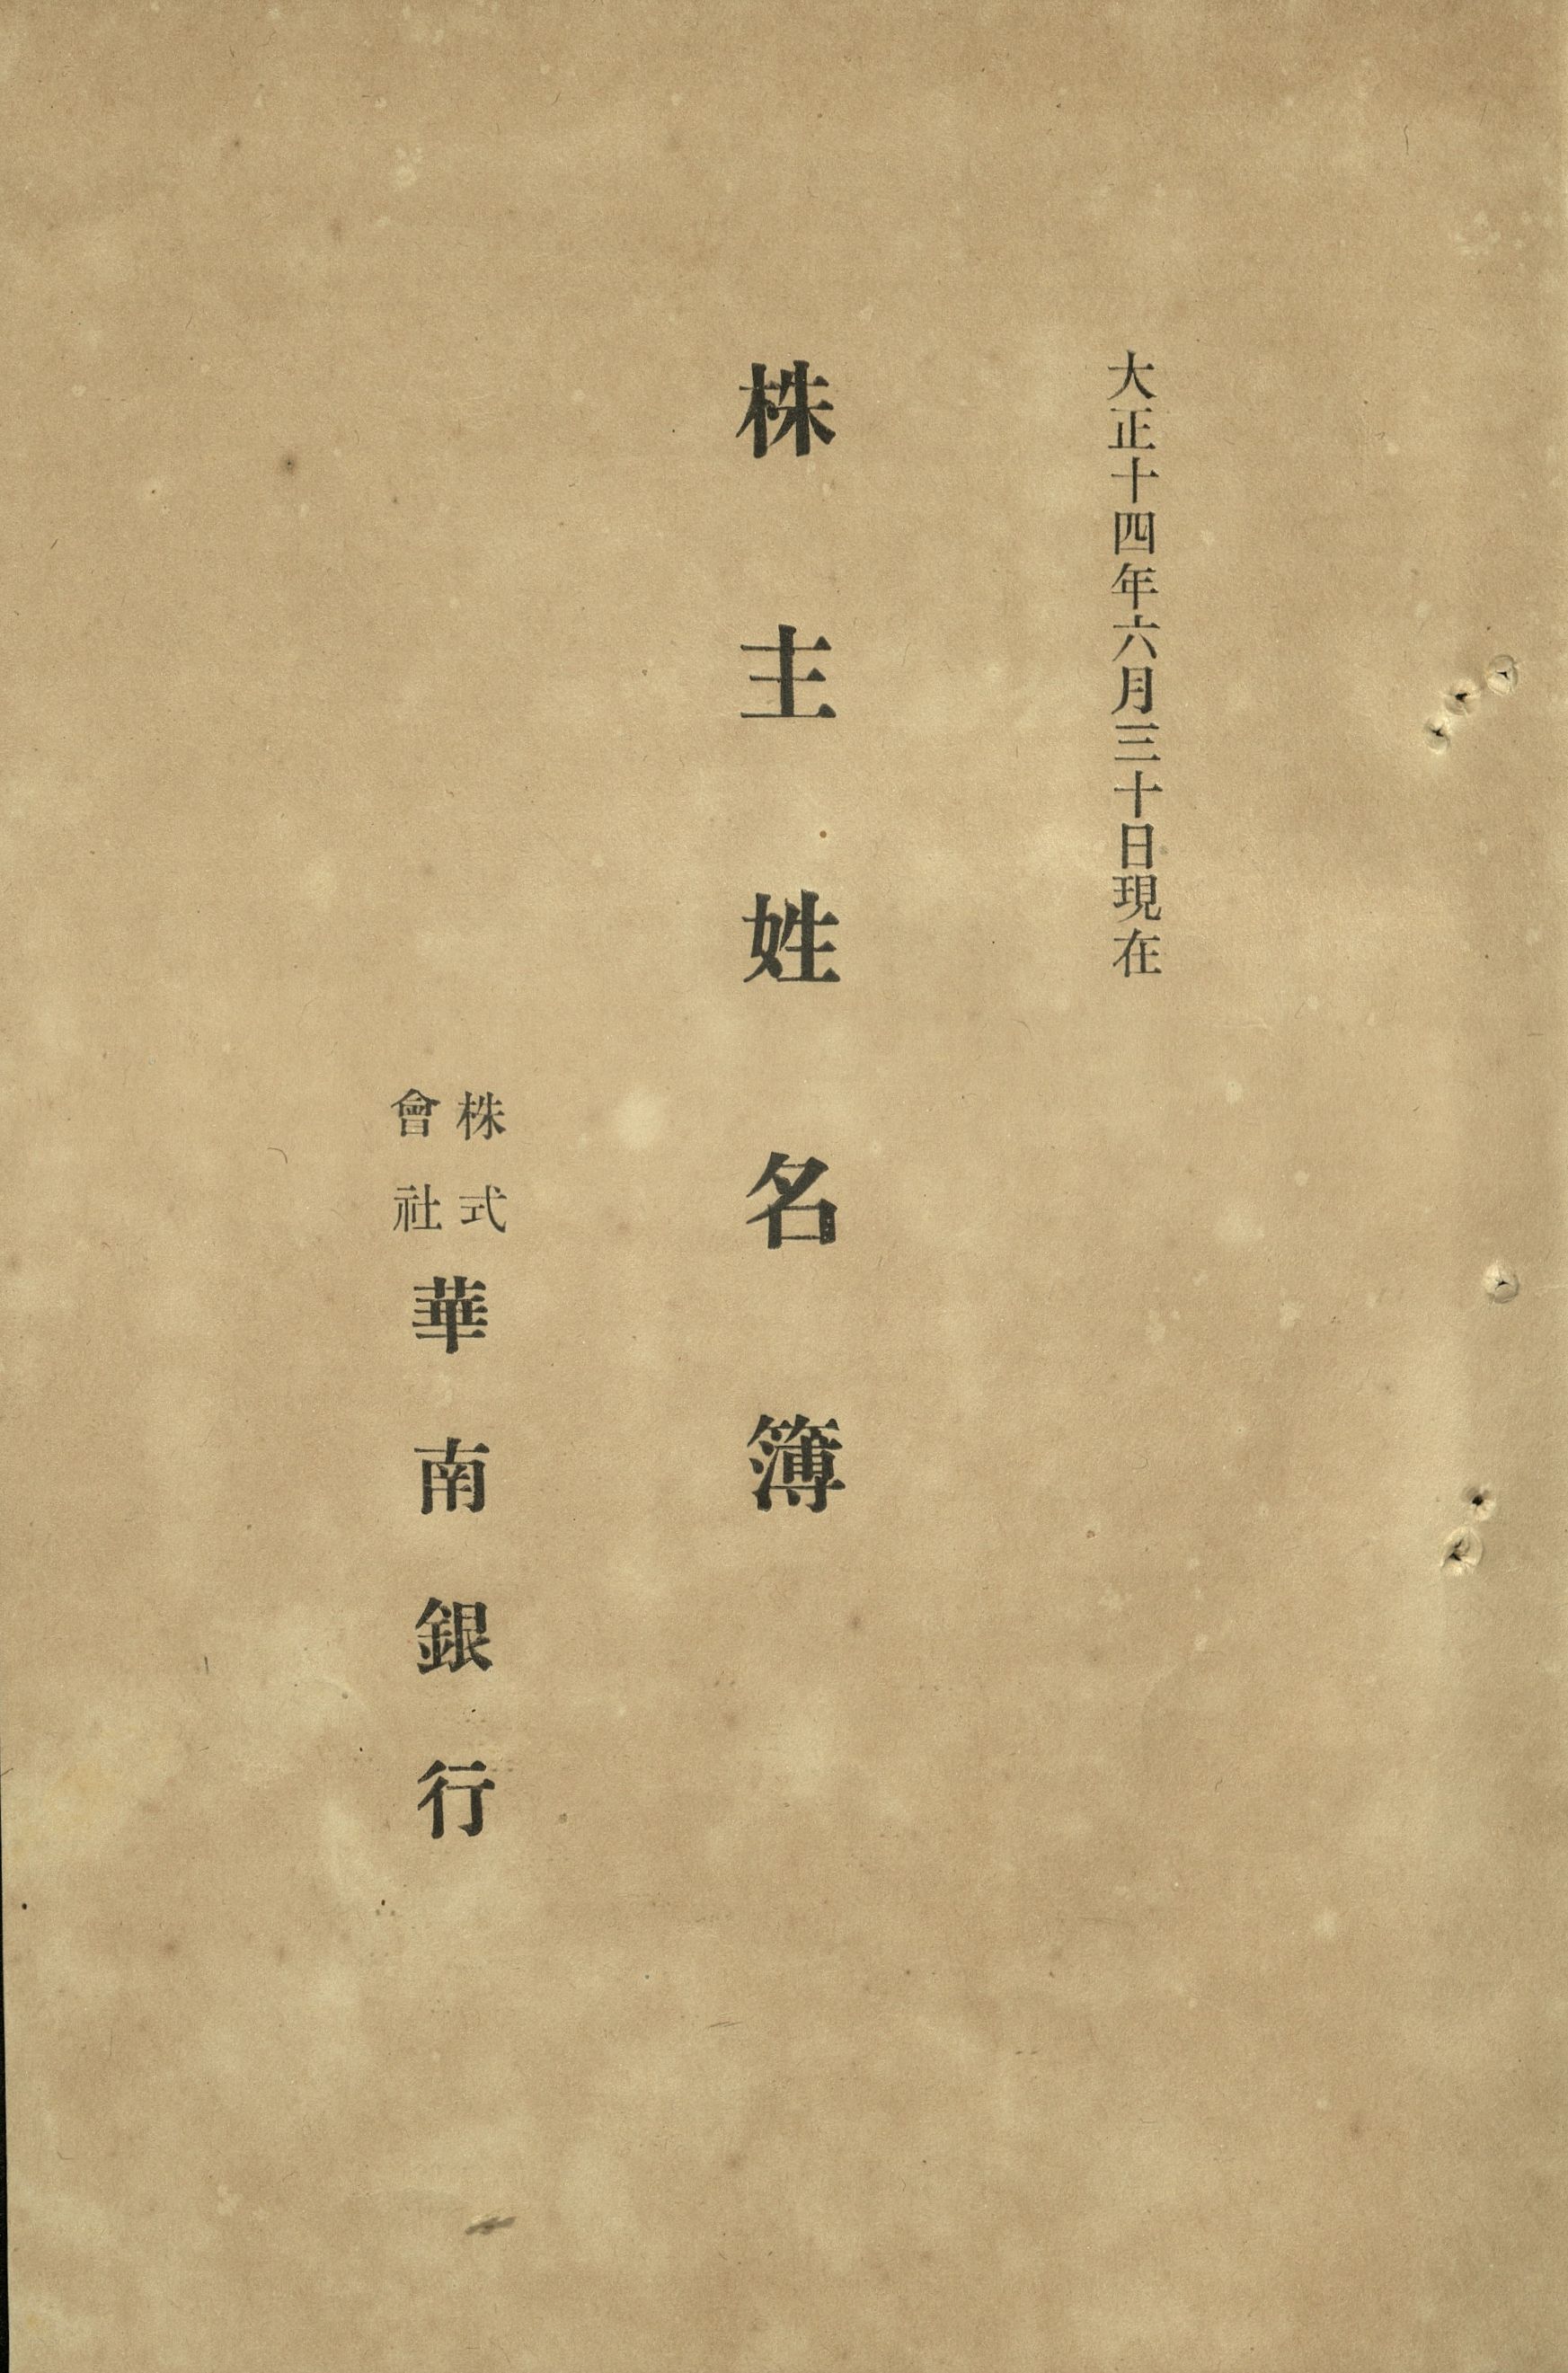 大正十四年六月三十日現在
株主姓名簿
株式會社華南銀行